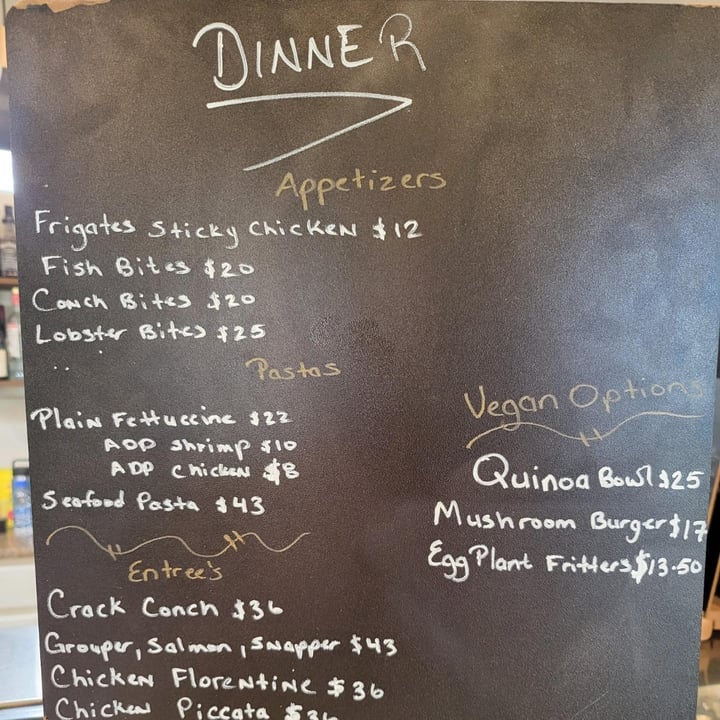 DINNER
Appetizers
Frigates Sticky Chicken $12
Fish Bites $20
Conch Bites $20
Lobster Bites $25
Pastas
Plain Fettuccine $22
ADD Shrimp $10
ADD Chicken $8
Seafood Pasta $43
Entree's
Crack Conch $36
Grouper, Salmon, Snapper $43
Chicken Florentine $36
Chicken Piccata $36
Vegan Options
Quinoa Bowl $25
Mushroom Burger $17
Egg Plant Fritters $13.50